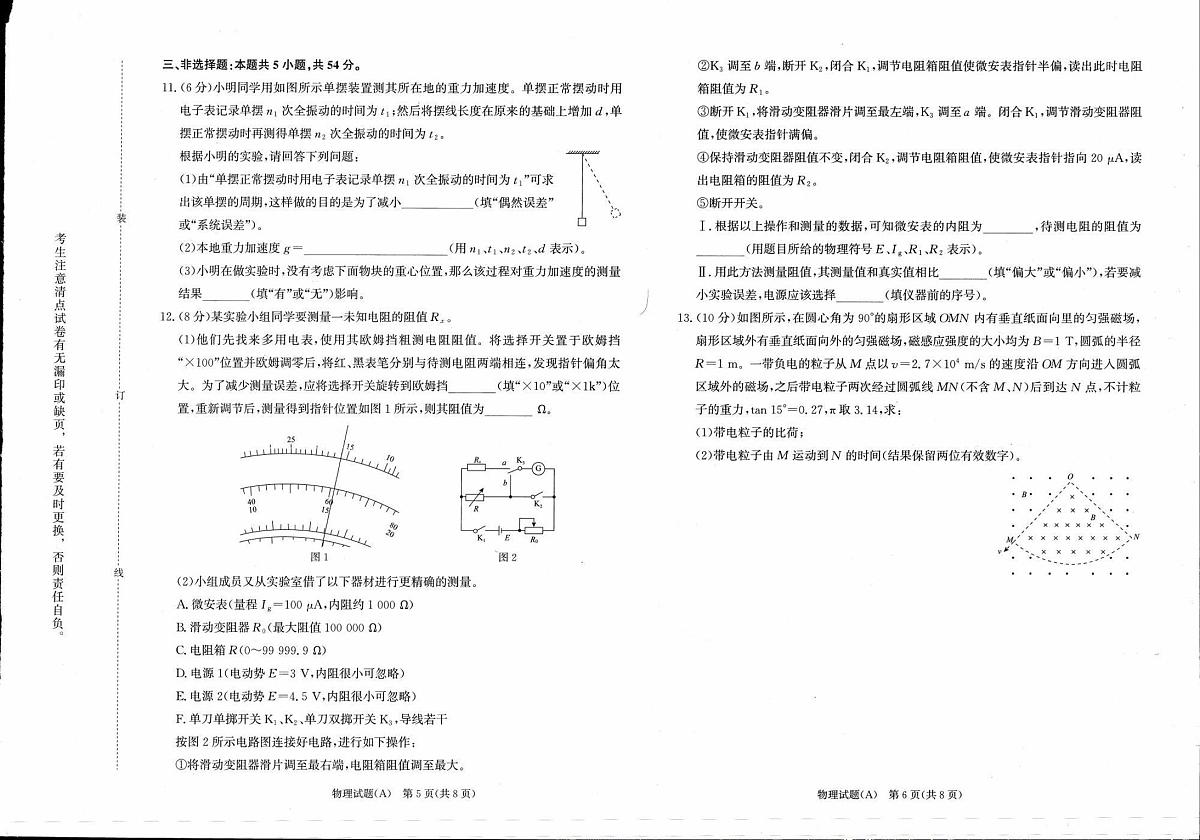 三、非选择题:本题共5小题,共54分。
11.(6分)小明同学用如图所示单摆装置测其所在地的重力加速度。单摆正常摆动时用
电子表记录单摆n₁次全振动的时间为t₁;然后将摆线长度在原来的基础上增加d,单
摆正常摆动时再测得单摆n₂次全振动的时间为t₂。
根据小明的实验,请回答下列问题:
(1)由“单摆正常摆动时用电子表记录单摆n₁次全振动的时间为t₁”可求
出该单摆的周期,这样做的目的是为了减小__________(填“偶然误差”
或“系统误差”)。
(2)本地重力加速度g=__________(用n₁、t₁、n₂、t₂、d表示)。
(3)小明在做实验时,没有考虑下面物块的重心位置,那么该过程对重力加速度的测量
结果______(填“有”或“无”)影响。
12.(8分)某实验小组同学要测量一未知电阻的阻值Rₓ。
(1)他们先找来多用电表,使用其欧姆挡粗测电阻阻值。将选择开关置于欧姆挡
“×100”位置并欧姆调零后,将红、黑表笔分别与待测电阻两端相连,发现指针偏角太
大。为了减少测量误差,应将选择开关旋转到欧姆挡______(填“×10”或“×1k”)位
置,重新调节后,测量得到指针位置如图1所示,则其阻值为______Ω。
25
15
10
40
60
80
10
15
20
图1
Rₓ
a
K₃
G
b
R
K₂
K₁
E
R₀
图2
(2)小组成员又从实验室借了以下器材进行更精确的测量。
A.微安表(量程Ig=100 μA,内阻约1 000 Ω)
B.滑动变阻器R₀(最大阻值100 000 Ω)
C.电阻箱R(0～99 999.9 Ω)
D.电源1(电动势E=3 V,内阻很小可忽略)
E.电源2(电动势E=4.5 V,内阻很小可忽略)
F.单刀单掷开关K₁、K₂、单刀双掷开关K₃,导线若干
按图2所示电路图连接好电路,进行如下操作:
①将滑动变阻器滑片调至最右端,电阻箱阻值调至最大。
物理试题(A) 第5页(共8页)
②K₃调至b端,断开K₂,闭合K₁,调节电阻箱阻值使微安表指针半偏,读出此时电阻
箱阻值为R₁。
③断开K₁,将滑动变阻器滑片调至最左端,K₃调至a端。闭合K₁,调节滑动变阻器阻
值,使微安表指针满偏。
④保持滑动变阻器阻值不变,闭合K₂,调节电阻箱阻值,使微安表指针指向20 μA,读
出电阻箱的阻值为R₂。
⑤断开开关。
Ⅰ.根据以上操作和测量的数据,可知微安表的内阻为______,待测电阻的阻值为
______(用题目所给的物理符号E、Ig、R₁、R₂表示)。
Ⅱ.用此方法测量阻值,其测量值和真实值相比______(填“偏大”或“偏小”),若要减
小实验误差,电源应该选择______(填仪器前的序号)。
13.(10分)如图所示,在圆心角为90°的扇形区域OMN内有垂直纸面向里的匀强磁场,
扇形区域外有垂直纸面向外的匀强磁场,磁感应强度的大小均为B=1 T,圆弧的半径
R=1 m。一带负电的粒子从M点以v=2.7×10⁴ m/s的速度沿OM方向进入圆弧
区域外的磁场,之后带电粒子两次经过圆弧线MN(不含M、N)后到达N点,不计粒
子的重力,tan 15°=0.27,π取3.14,求:
(1)带电粒子的比荷;
(2)带电粒子由M运动到N的时间(结果保留两位有效数字)。
O
B
B
M
N
v
物理试题(A) 第6页(共8页)
考生注意清点试卷有无漏印或缺页,若有要及时更换,否则责任自负。
装
订
线